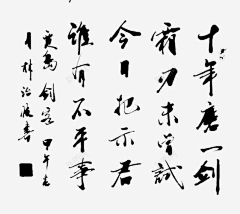 十年磨一剑
霜刃未曾试
今日把示君
谁有不平事
贾岛 剑客 甲午